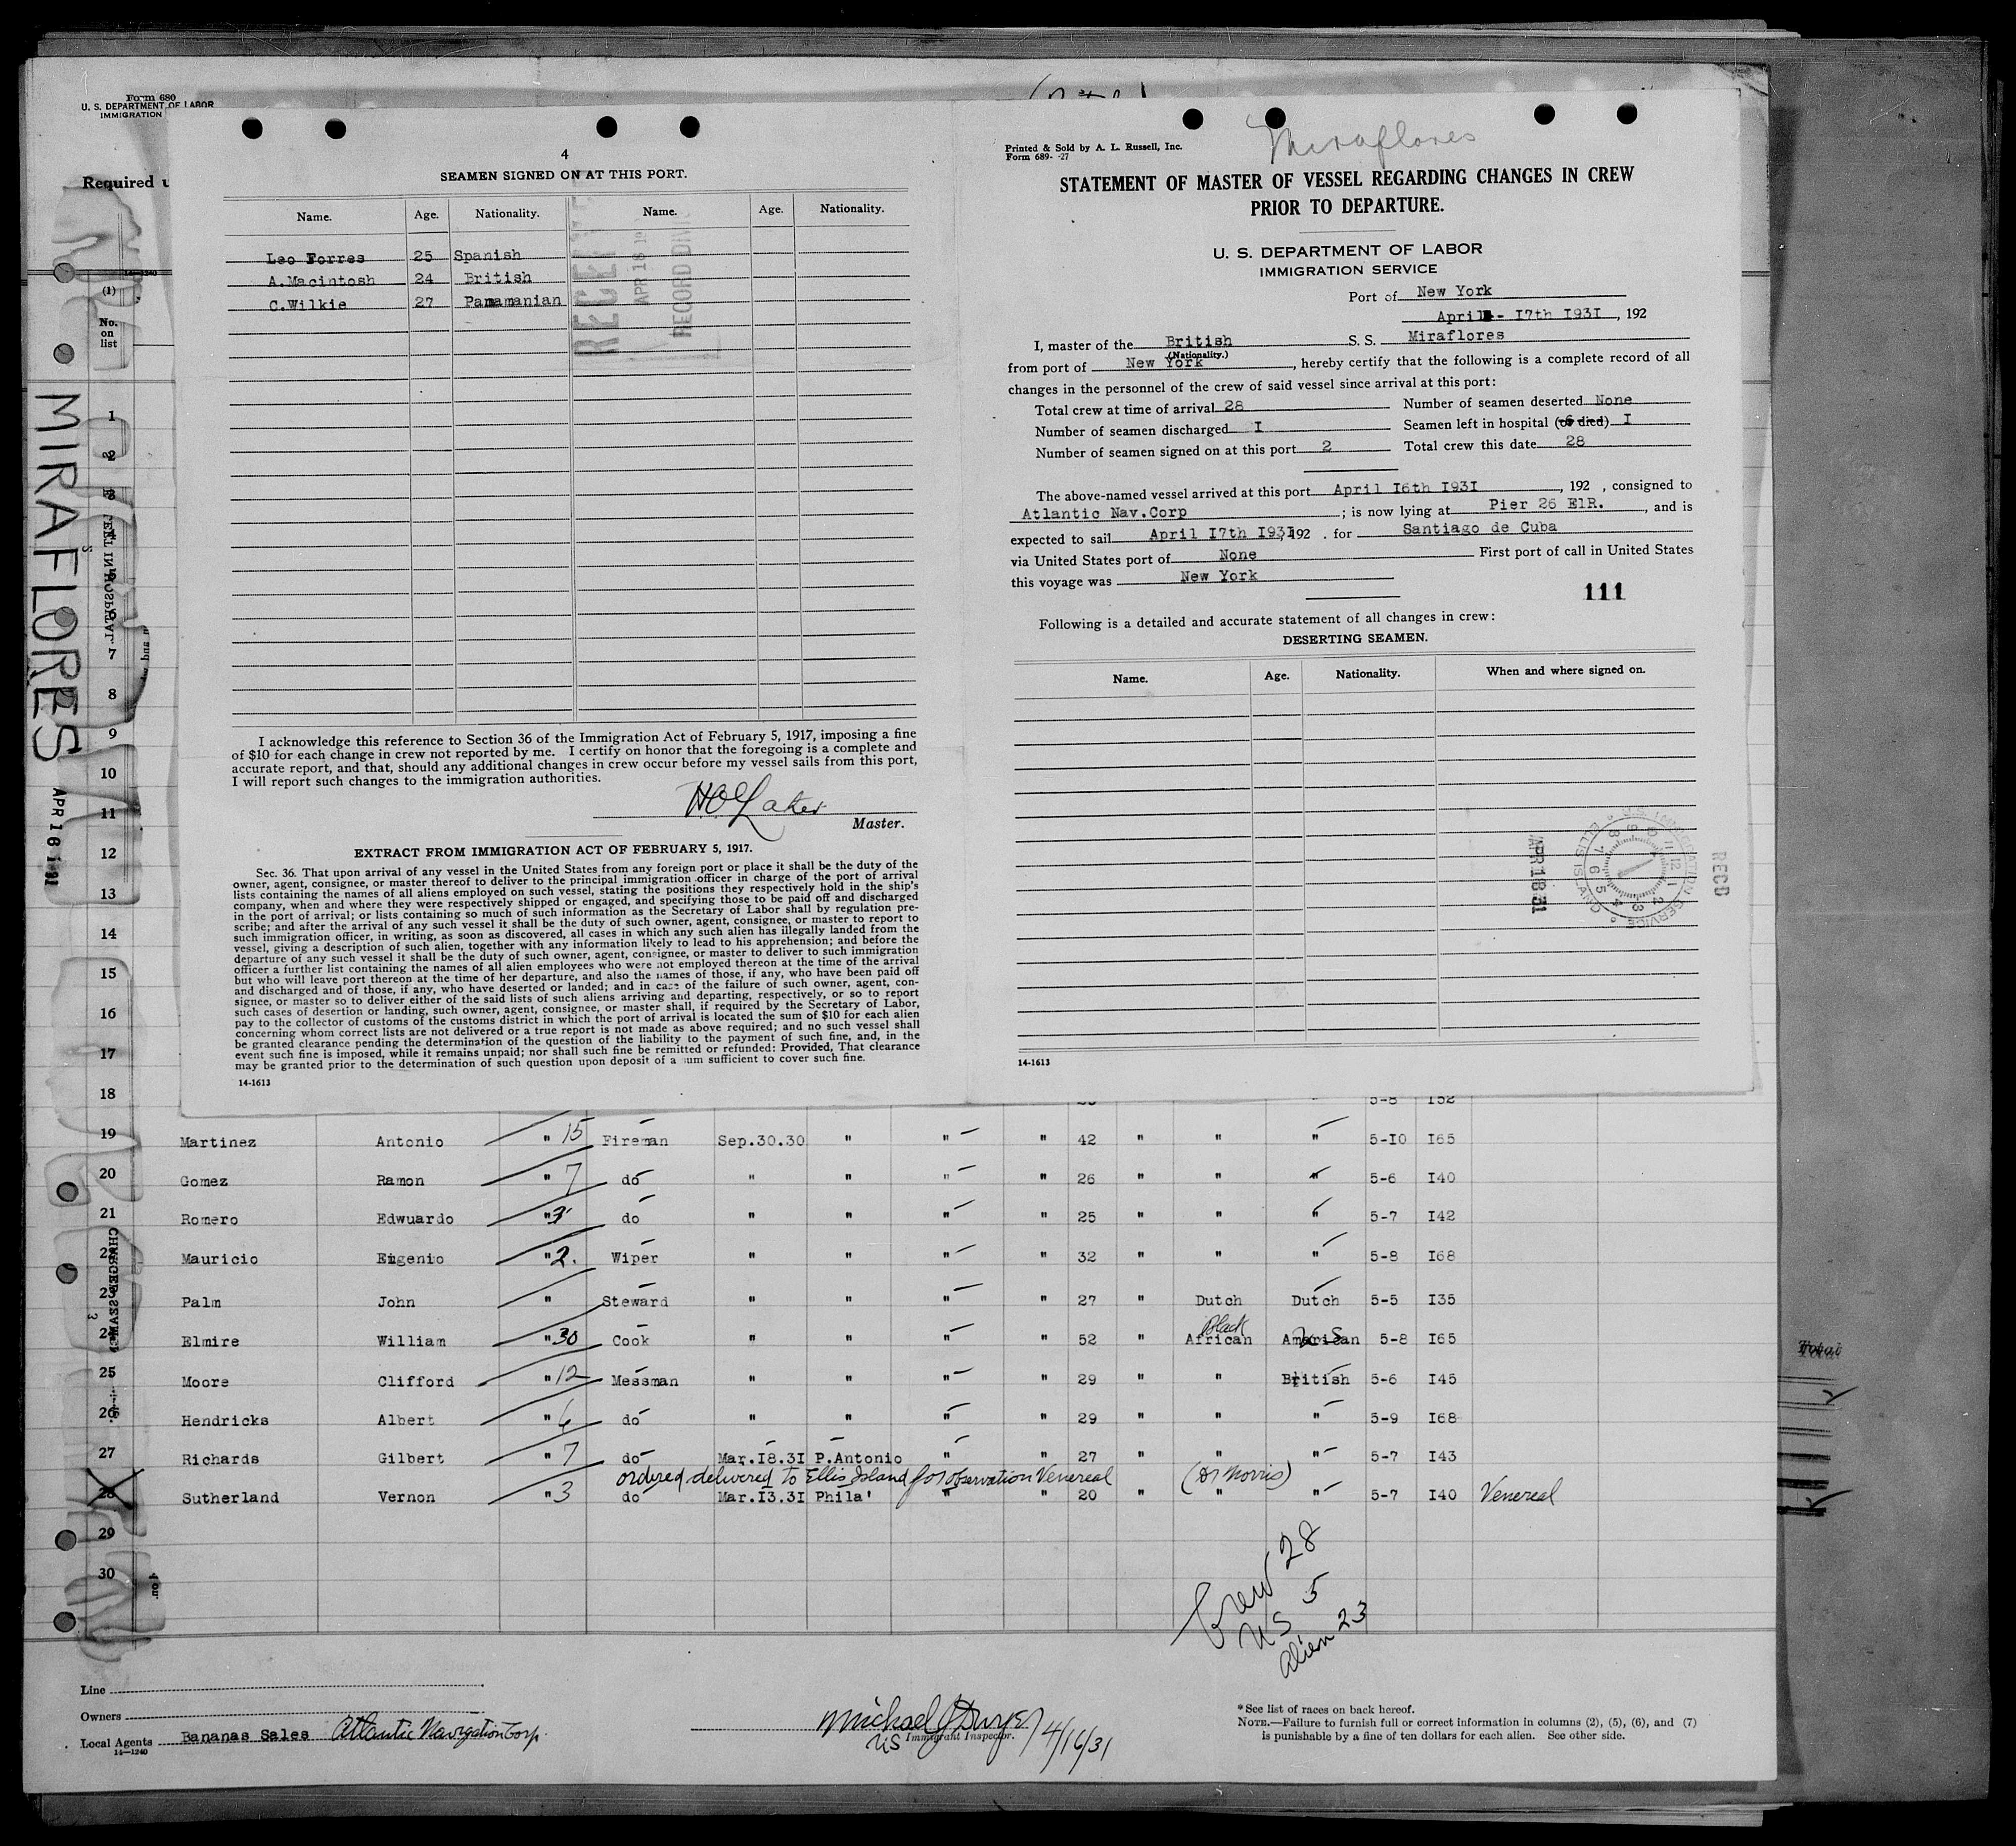 Form 680
U. S. DEPARTMENT OF LABOR
IMMIGRATION
Required u
(1)
No.
on
list
MIRAFLORES
APR 16 1931
4
SEAMEN SIGNED ON AT THIS PORT.
Name. Age. Nationality. Name. Age. Nationality.
Leo Forres 25 Spanish
A.Macintosh 24 British
C.Wilkie 27 Panamanian
I acknowledge this reference to Section 36 of the Immigration Act of February 5, 1917, imposing a fine
of $10 for each change in crew not reported by me. I certify on honor that the foregoing is a complete and
accurate report, and that, should any additional changes in crew occur before my vessel sails from this port,
I will report such changes to the immigration authorities.
Master.
EXTRACT FROM IMMIGRATION ACT OF FEBRUARY 5, 1917.
Sec. 36. That upon arrival of any vessel in the United States from any foreign port or place it shall be the duty of the
owner, agent, consignee, or master thereof to deliver to the principal immigration officer in charge of the port of arrival
lists containing the names of all aliens employed on such vessel, stating the positions they respectively hold in the ship's
company, when and where they were respectively shipped or engaged, and specifying those to be paid off and discharged
in the port of arrival; or lists containing so much of such information as the Secretary of Labor shall by regulation pre-
scribe; and after the arrival of any such vessel it shall be the duty of such owner, agent, consignee, or master to report to
such immigration officer, in writing, as soon as discovered, all cases in which any such alien has illegally landed from the
vessel, giving a description of such alien, together with any information likely to lead to his apprehension; and before the
departure of any such vessel it shall be the duty of such owner, agent, consignee, or master to deliver to such immigration
officer a further list containing the names of all alien employees who were not employed thereon at the time of the arrival
but who will leave port thereon at the time of her departure, and also the names of those, if any, who have been paid off
and discharged and of those, if any, who have deserted or landed; and in case of the failure of such owner, agent, con-
signee, or master so to deliver either of the said lists of such aliens arriving and departing, respectively, or so to report
such cases of desertion or landing, such owner, agent, consignee, or master shall, if required by the Secretary of Labor,
pay to the collector of customs of the customs district in which the port of arrival is located the sum of $10 for each alien
concerning whom correct lists are not delivered or a true report is not made as above required; and no such vessel shall
be granted clearance pending the determination of the question of the liability to the payment of such fine, and, in the
event such fine is imposed, while it remains unpaid; nor shall such fine be remitted or refunded: Provided, That clearance
may be granted prior to the determination of such question upon deposit of a sum sufficient to cover such fine.
14-1613
Miraflores
Printed & Sold by A. L. Russell, Inc.
Form 689- -27
STATEMENT OF MASTER OF VESSEL REGARDING CHANGES IN CREW
PRIOR TO DEPARTURE.
U. S. DEPARTMENT OF LABOR
IMMIGRATION SERVICE
Port of New York
April - I7th I93I, 192
I, master of the British S. S. Miraflores
(Nationality.)
from port of New York, hereby certify that the following is a complete record of all
changes in the personnel of the crew of said vessel since arrival at this port:
Total crew at time of arrival 28 Number of seamen deserted None
Number of seamen discharged I Seamen left in hospital (or died) I
Number of seamen signed on at this port 2 Total crew this date 28
The above-named vessel arrived at this port April I6th I93I, 192 , consigned to
Atlantic Nav.Corp ; is now lying at Pier 26 ElR. , and is
expected to sail April I7th I93I, 192 . for Santiago de Cuba
via United States port of None First port of call in United States
this voyage was New York
111
Following is a detailed and accurate statement of all changes in crew:
DESERTING SEAMEN.
Name. Age. Nationality. When and where signed on.
RECD
APR 18 31
14-1613
1
2
3
7
8
9
10
11
12
13
14
15
16
17
18 5-8 I52
19 Martinez Antonio " 15 Fireman Sep.30.30 " " " 42 " " " 5-I0 I65
20 Gomez Ramon " 7 do " " " " 26 " " " 5-6 I40
21 Romero Edwuardo " 3 do " " " " 25 " " " 5-7 I42
22 Mauricio Eugenio " 2. Wiper " " " " 32 " " " 5-8 I68
23 Palm John " Steward " " " " 27 " Dutch Dutch 5-5 I35
Black
24 Elmire William " 30 Cook " " " " 52 " African American U S 5-8 I65
25 Moore Clifford " 12 Messman " " " " 29 " " British 5-6 I45
26 Hendricks Albert " 6 do " " " " 29 " " " 5-9 I68
27 Richards Gilbert " 7 do Mar.I8.3I P.Antonio " " 27 " " " 5-7 I43
ordered delivered to Ellis Island for observation Venereal (Dr Norris)
28 Sutherland Vernon " 3 do Mar.I3.3I Phila' " " 20 " " " 5-7 I40 Venereal
29
30
Crew 28
US 5
Alien 23
Line
Owners
Local Agents Bananas Sales Atlantic Navigation Corp.
14—1240
Michael J Dwyer 4/16/31
US Immigrant Inspector.
*See list of races on back hereof.
NOTE.—Failure to furnish full or correct information in columns (2), (5), (6), and (7)
is punishable by a fine of ten dollars for each alien. See other side.